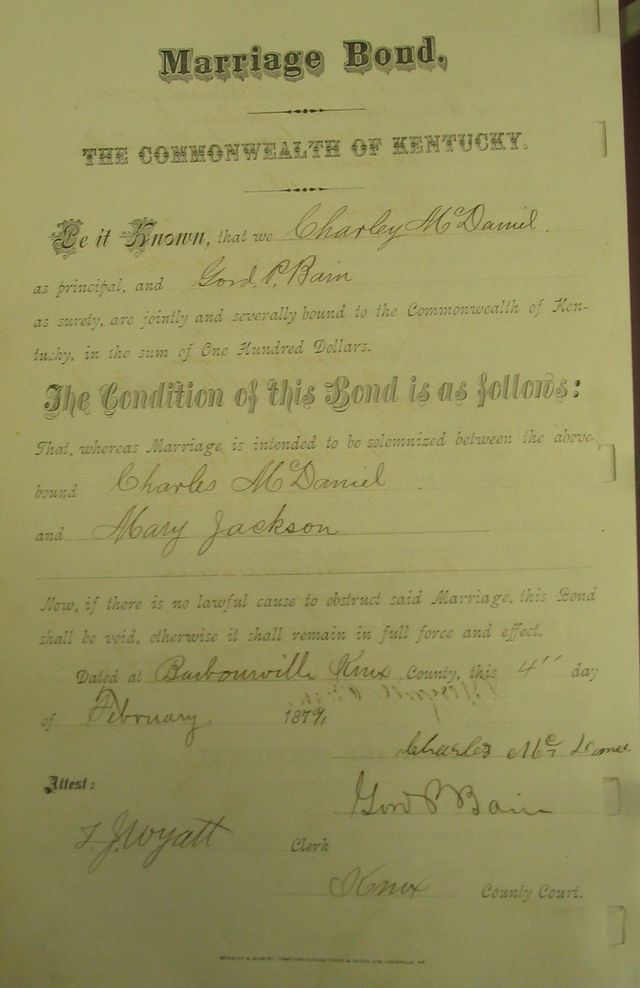 Marriage Bond.
THE COMMONWEALTH OF KENTUCKY.
Be it Known, that we Charley McDaniel.
as principal, and Gord. P. Bain
as surety, are jointly and severally bound to the Commonwealth of Ken-
tucky, in the sum of One Hundred Dollars.
The Condition of this Bond is as follows:
That, whereas Marriage is intended to be solemnized between the above
bound Charles McDaniel.
and Mary Jackson
Now, if there is no lawful cause to obstruct said Marriage, this Bond
shall be void, otherwise it shall remain in full force and effect.
Dated at Barbourville Knox County, this 4" day
of February, 1879,
Charles Mc
Attest:
Gord P Bain
F. J. Wyatt Clerk
Knox County Court.